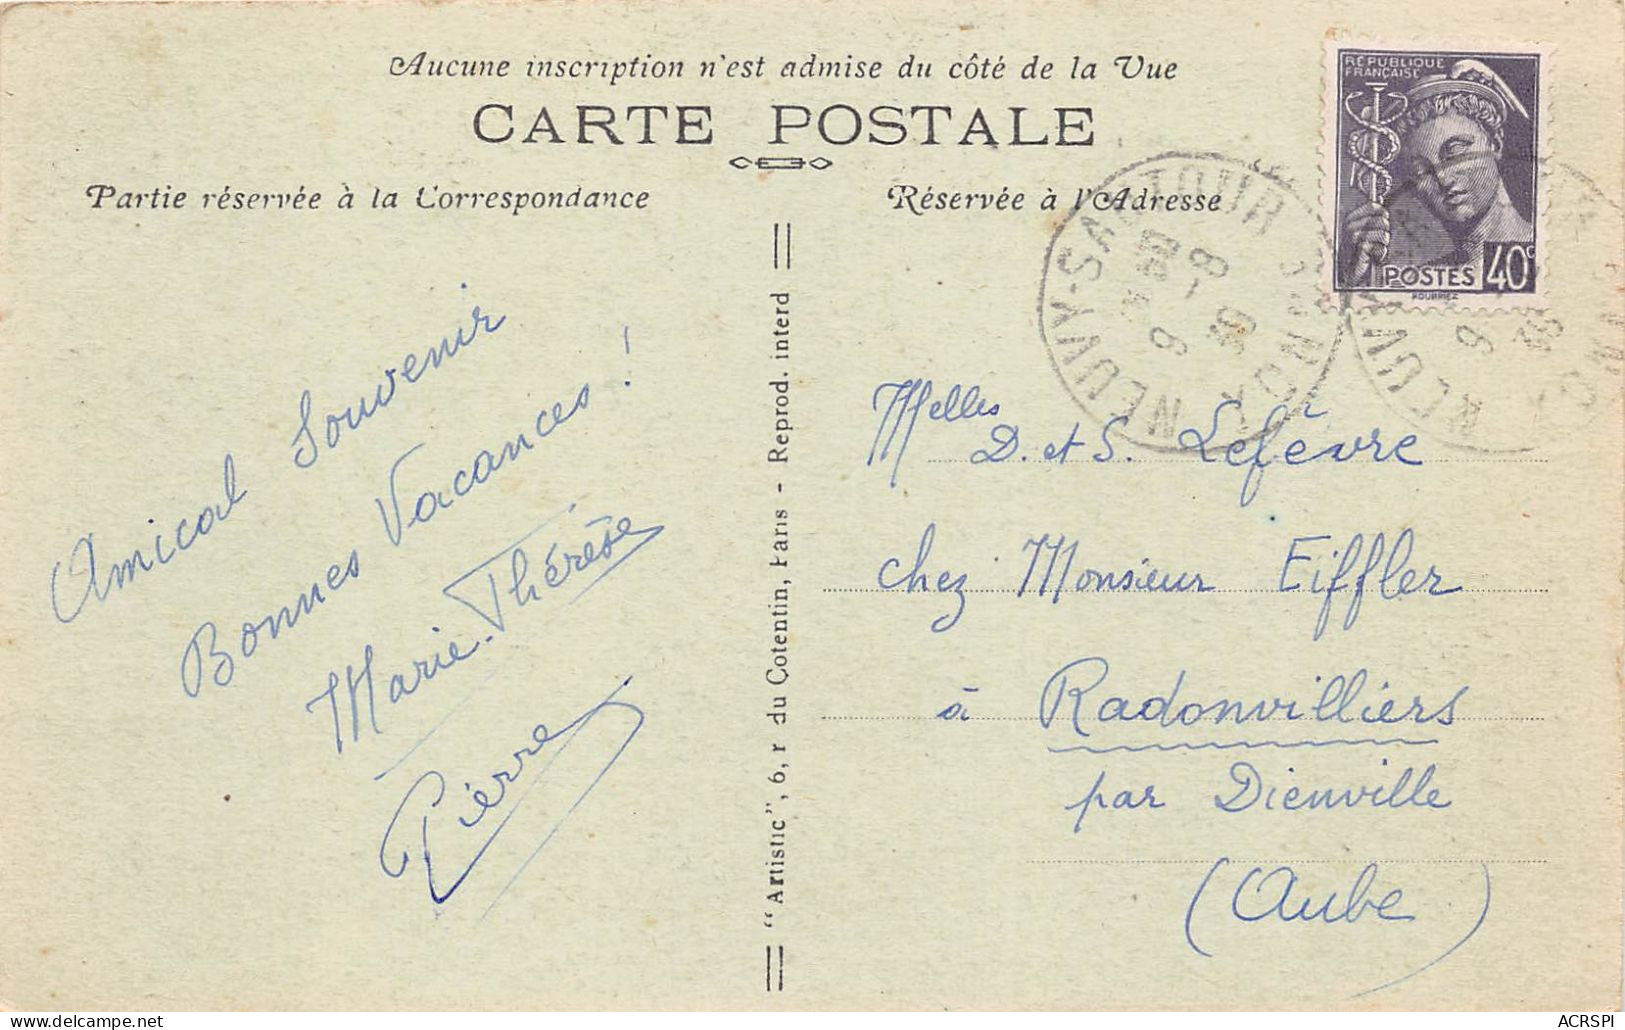 Aucune inscription n'est admise du côté de la Vue
CARTE POSTALE
Partie réservée à la Correspondance
Réservée à l'Adresse
RÉPUBLIQUE
FRANÇAISE
POSTES 40c
NEUVY-SAUTOUR
YONNE
9
-8
39
Amical Souvenir
Bonnes Vacances !
Marie-Thérèse
Pierre
"Artistic", 6, r du Cotentin, Paris - Reprod. interd
Melles
D. et S. Lefèvre
chez Monsieur Eiffler
à Radonvilliers
par Dienville
(Aube)
delcampe.net
ACRSPI